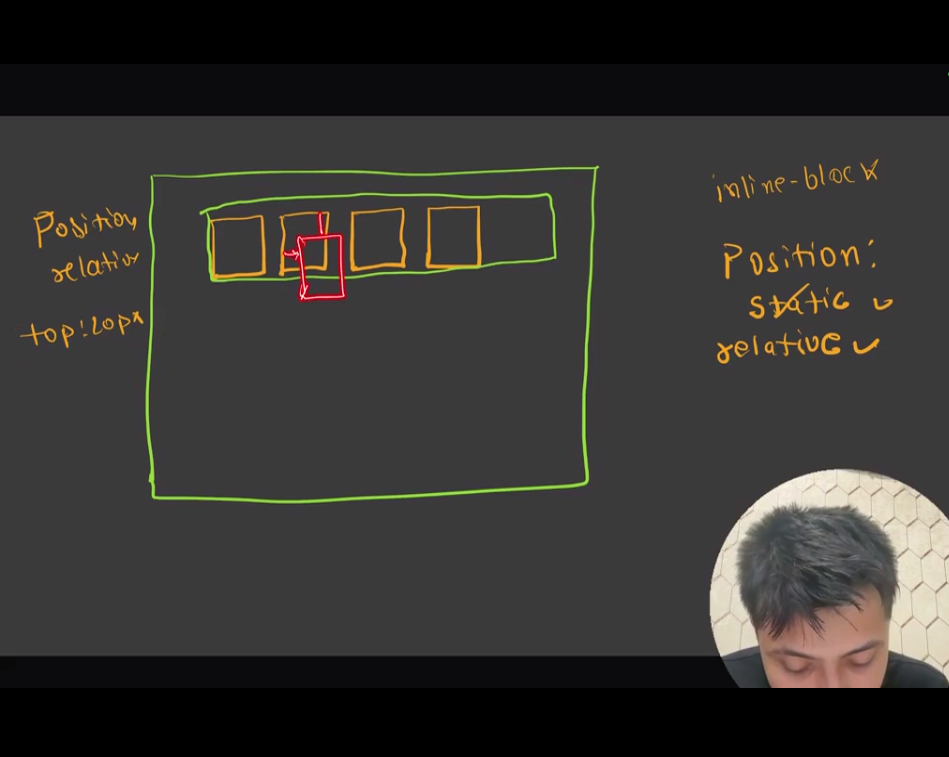 Position
relative
top:20px
inline-block
Position:
static
relative